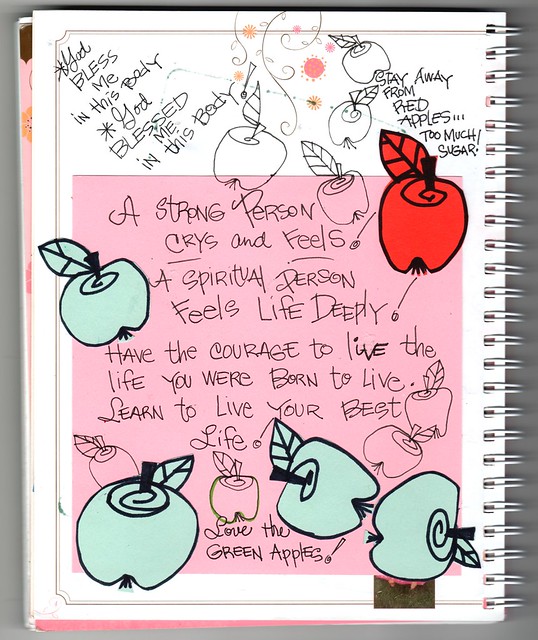 *God
BLESS
Me
in this Body
*God
BLESSED
ME
in this Body!
STAY AWAY
FROM
RED
APPLES...
TOO MUCH
SUGAR!
A STRONG PERSON
CRYS and Feels!
A SPIRITUAL PERSON
Feels Life Deeply!
HAVE the COURAGE to live the
life YOU WERE BORN to Live.
LEARN to Live YOUR BEST
Life!
Love the
GREEN APPles!